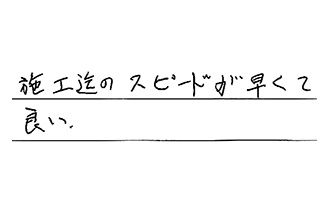 施工迄のスピードが早くて
良い.